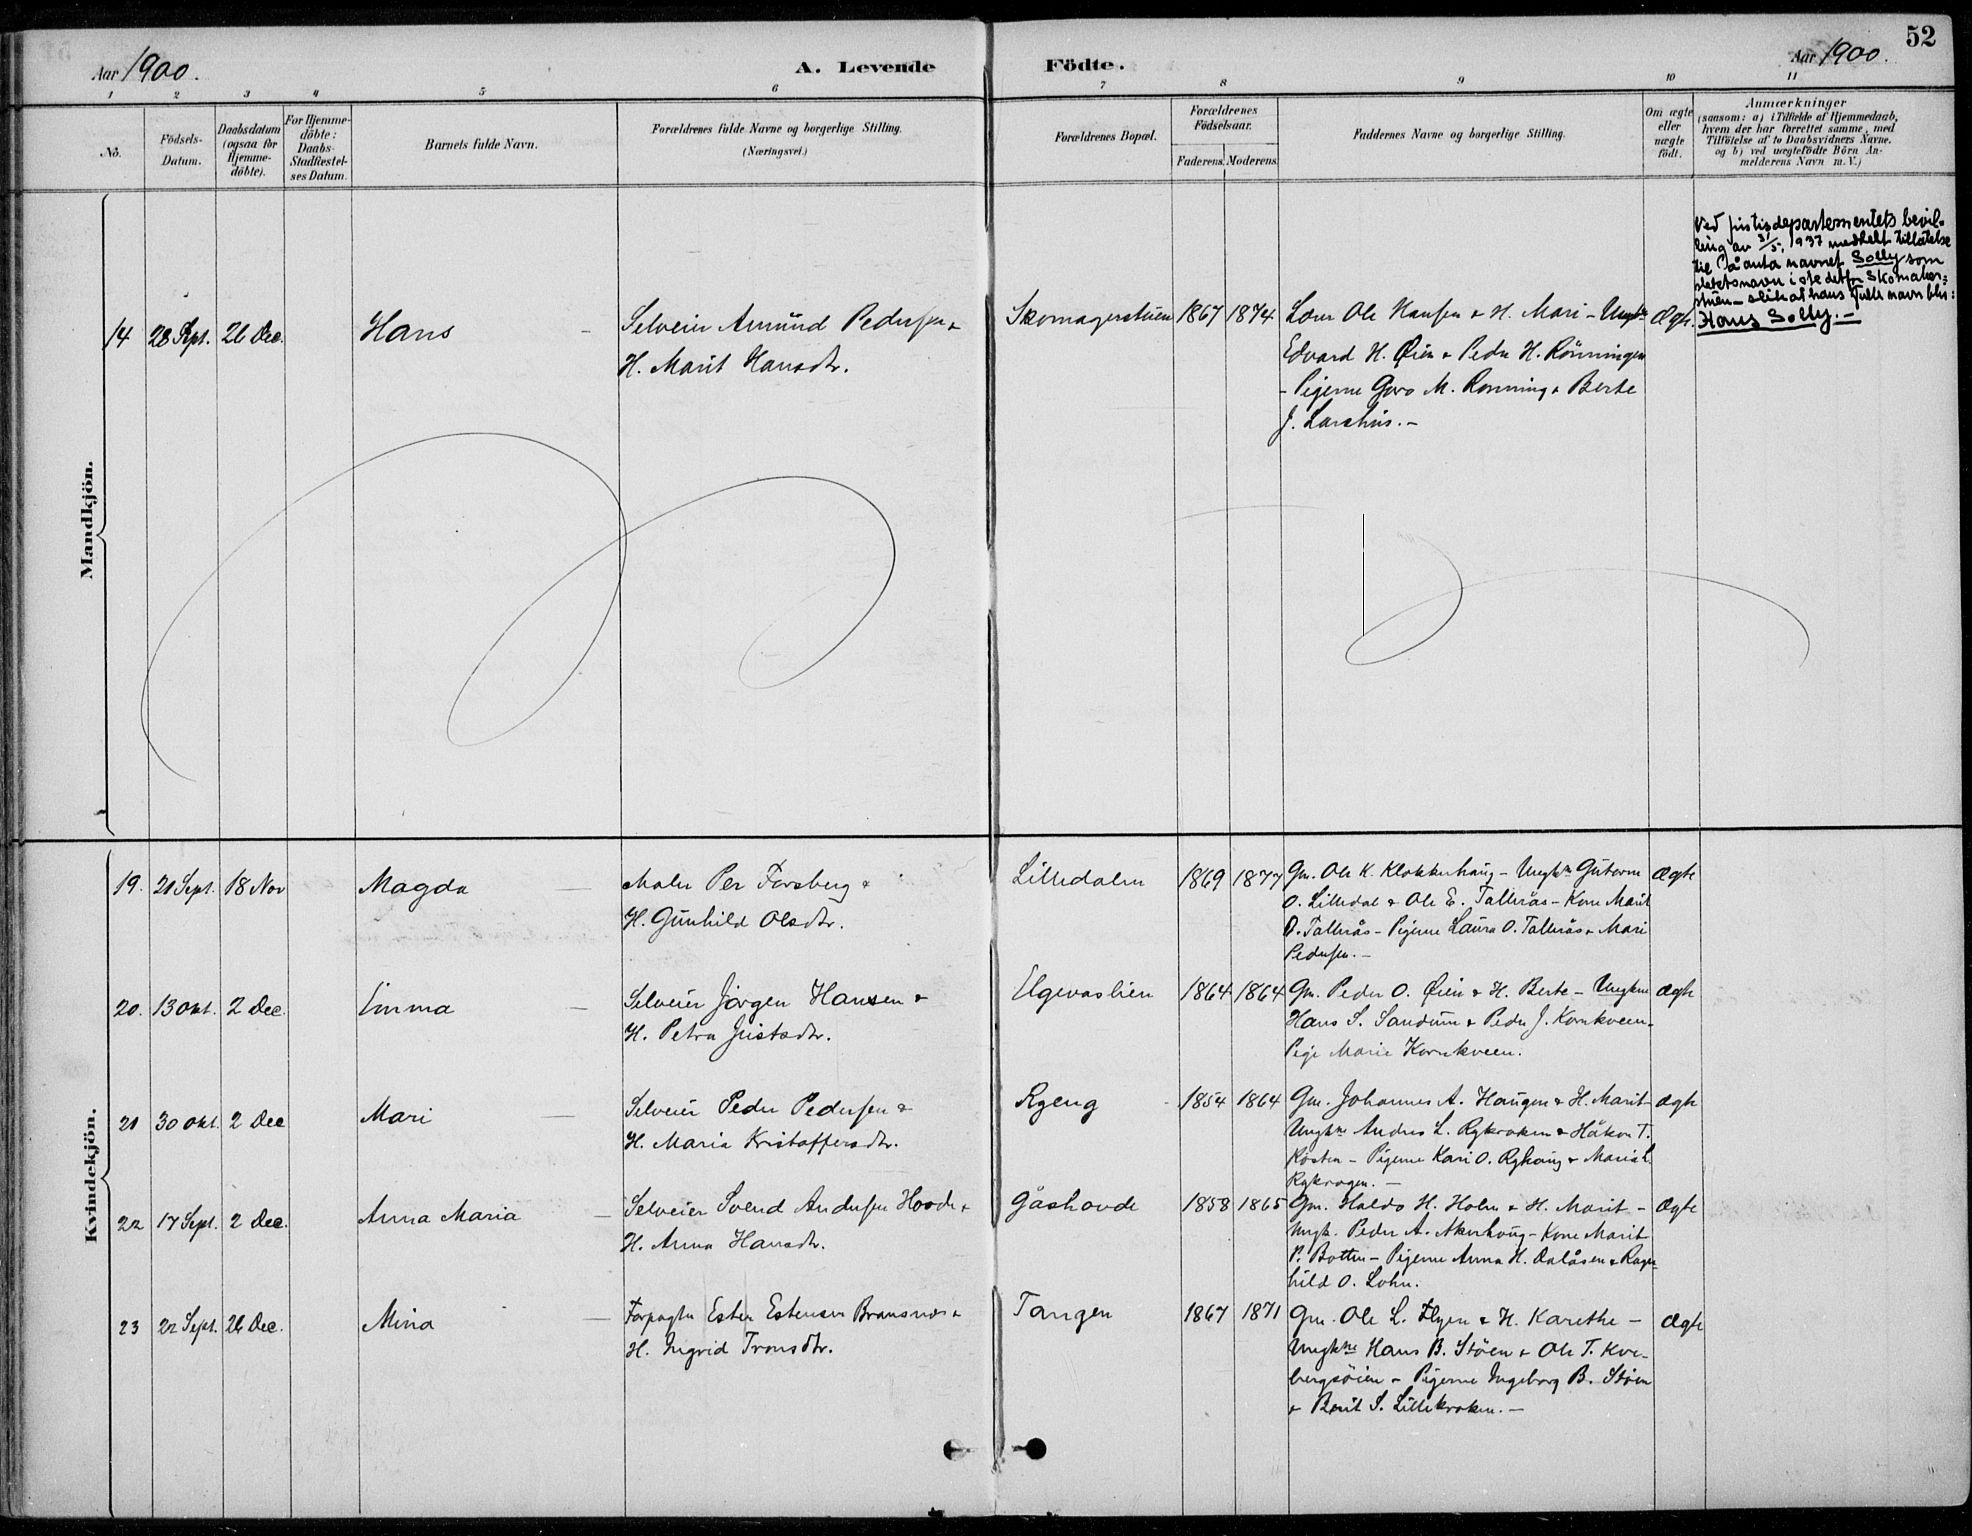 52
Aar 1900.
A. Levende Födte.
Aar 1900.
1 2 3 4 5 6 7 8 9 10 11
No.
Födsels-Datum.
Daabsdatum (ogsaa for Hjemme-döbte).
For Hjemme-döbte: Daabs-Stadfæstel-ses Datum.
Barnets fulde Navn.
Forældrenes fulde Navne og borgerlige Stilling.
(Næringsvei.)
Forældrenes Bopæl.
Forældrenes Födselsaar.
Faderens. Moderens.
Faddernes Navne og borgerlige Stilling.
Om ægte eller uægte födt.
Anmærkninger
(saasom: a) i Tilfælde af Hjemmedaab,
hvem der har forrettet samme, med
Tilföielse af to Daabsvidners Navne.
og b) ved uægtefödte Börn An-
melderens Navn m. V.)
Mandkjön.
14 28 Sept. 26 Dec. Hans
Selveier Amund Pedersen &
H. Marit Hansdtr.
Skomagerstuen 1867 1874
Lærer Ole Hansen & H. Mari - Ungkn
Edvard H. Øien & Peder H. Rönningen
- Pigerne Goro M. Rønning & Berte
J. Larshus. -
Ægte.
Ved justisdepartementets bevil-
ling av 31/5. 1937 meddelt tillatelse
til å anta navnet Solly som
slektsnavn i stedet for Skomaker-
stuen - slik at hans fulle navn blir:
Hans Solly. -
Kvindekjön.
19. 21 Sept. 18 Nov Magda
Maler Per Forsberg &
H. Gunhild Olsdtr.
Lilledalen 1869 1877
Gm. Ole K. Klokkerhaug - Ungkn Guttorm
O. Lilledal & Ole E. Tallerås - Kone Marit
O. Tallerås - Pigerne Laura O. Tallerås & Mari
Pedersen. -
Ægte
20. 13 Okt. 2 Dec. Emma
Selveier Jörgen Hansen &
H. Petra Justsdtr.
Elgevaslien 1864 1864
Gm. Peder O. Øien & H. Berte - Ungkne
Hans S. Sandum & Peder J. Kornkveen -
Pige Marie Kornkveen.
Ægte
21 30 Okt. 2 Dec Mari
Selveier Peder Pedersen &
H. Maria Kristoffersdtr.
Ryeng 1854 1864
Gm. Johannes A. Haugen & H. Marit -
Ungkne Anders L. Rykroken & Håkon T.
Kosten - Pigerne Kari O. Ryhaug & Maria L.
Rykrogen. -
Ægte
22 17 Sept. 2 Dec. Anna Maria
Selveier Svend Andersen Hovde &
H. Anna Hansdtr.
Gåshovde 1858 1865
Gm. Haldo H. Holm & H. Marit -
Ungk. Peder A. Akerhaug - Kone Marit
P. Botten - Pigerne Anna H. Dalåsen & Ragn-
hild O. Lohn.
Ægte
23 22 Sept. 26 Dec. Mina
Forpagter Esten Estensen Bransnes &
H. Ingrid Tronsdtr.
Tangen 1867 1871
Gm. Ole L. Elgen & H. Karethe -
Ungkne Hans B. Støen & Ole T. Kve-
bergsöien - Pigerne Ingeborg B. Støen
& Berit S. Lillekroken. -
Ægte